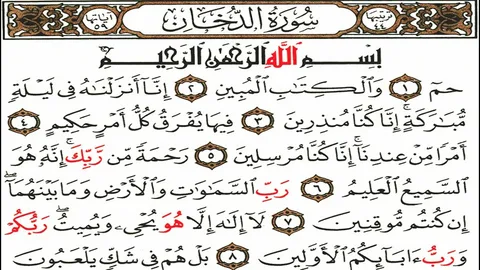 ترتيبها ٤٤ سُورَةُ الدُّخَانِ آياتها ٥٩
بِسْمِ اللَّهِ الرَّحْمَٰنِ الرَّحِيمِ
حمٓ ١ وَالْكِتَٰبِ الْمُبِينِ ٢ إِنَّآ أَنزَلْنَٰهُ فِى لَيْلَةٍ
مُّبَٰرَكَةٍ ۚ إِنَّا كُنَّا مُنذِرِينَ ٣ فِيهَا يُفْرَقُ كُلُّ أَمْرٍ حَكِيمٍ ٤
أَمْرًا مِّنْ عِندِنَآ ۚ إِنَّا كُنَّا مُرْسِلِينَ ٥ رَحْمَةً مِّن رَّبِّكَ ۚ إِنَّهُۥ هُوَ
السَّمِيعُ الْعَلِيمُ ٦ رَبِّ السَّمَٰوَٰتِ وَالْأَرْضِ وَمَا بَيْنَهُمَآ ۖ
إِن كُنتُم مُّوقِنِينَ ٧ لَآ إِلَٰهَ إِلَّا هُوَ يُحْىِۦ وَيُمِيتُ ۖ رَبُّكُمْ
وَرَبُّ ءَابَآئِكُمُ الْأَوَّلِينَ ٨ بَلْ هُمْ فِى شَكٍّ يَلْعَبُونَ